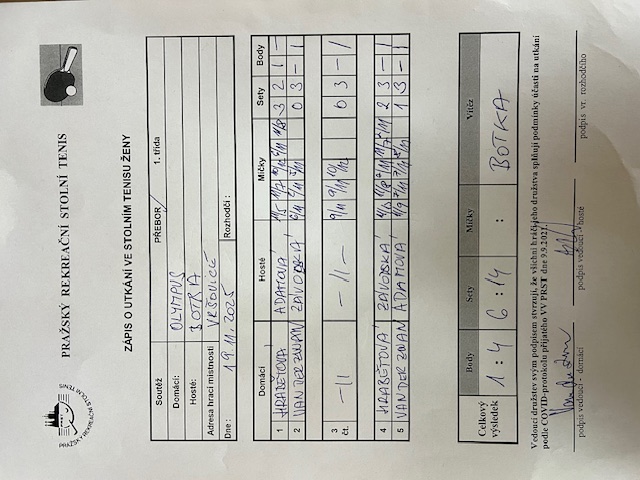 PRAŽSKÝ REKREAČNÍ STOLNÍ TENIS
PRAŽSKÝ REKREAČNÍ STOLNÍ TENIS
ZÁPIS O UTKÁNÍ VE STOLNÍM TENISU ŽENY
Soutěž PŘEBOR 1. třída
Domácí: OLYMPUS
Hosté: BOTKA
Adresa hrací místnosti VRŠOVICE
Dne: 19.11.2025 Rozhodčí:
Domácí Hosté Míčky Sety Body
1 HRABĚTOVÁ ADAMOVÁ 3 2 1 –
2 VAN DER ZWAN ZÁVODSKÁ 0 3 – 1
3 čt. –11– –11– 9/11 9/11 10/12 0 3 – 1
4 HRABĚTOVÁ ZÁVODSKÁ 2 3 – 1
5 VAN DER ZWAN ADAMOVÁ 1 3 – 1
Celkový výsledek
Body Sety Míčky Vítěz
1 : 4 6 : 14 : BOTKA
Vedoucí družstev svým podpisem stvrzují, že všichni hráči jeho družstva splňují podmínky účasti na utkání
podle COVID-protokolu přijatého VV PRST dne 9.9.2021.
podpis vedoucí - domácí podpis vedoucí - hosté podpis vr. rozhodčího